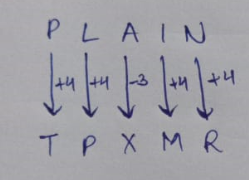 P L A I N
+4 +4 -3 +4 +4
T P X M R